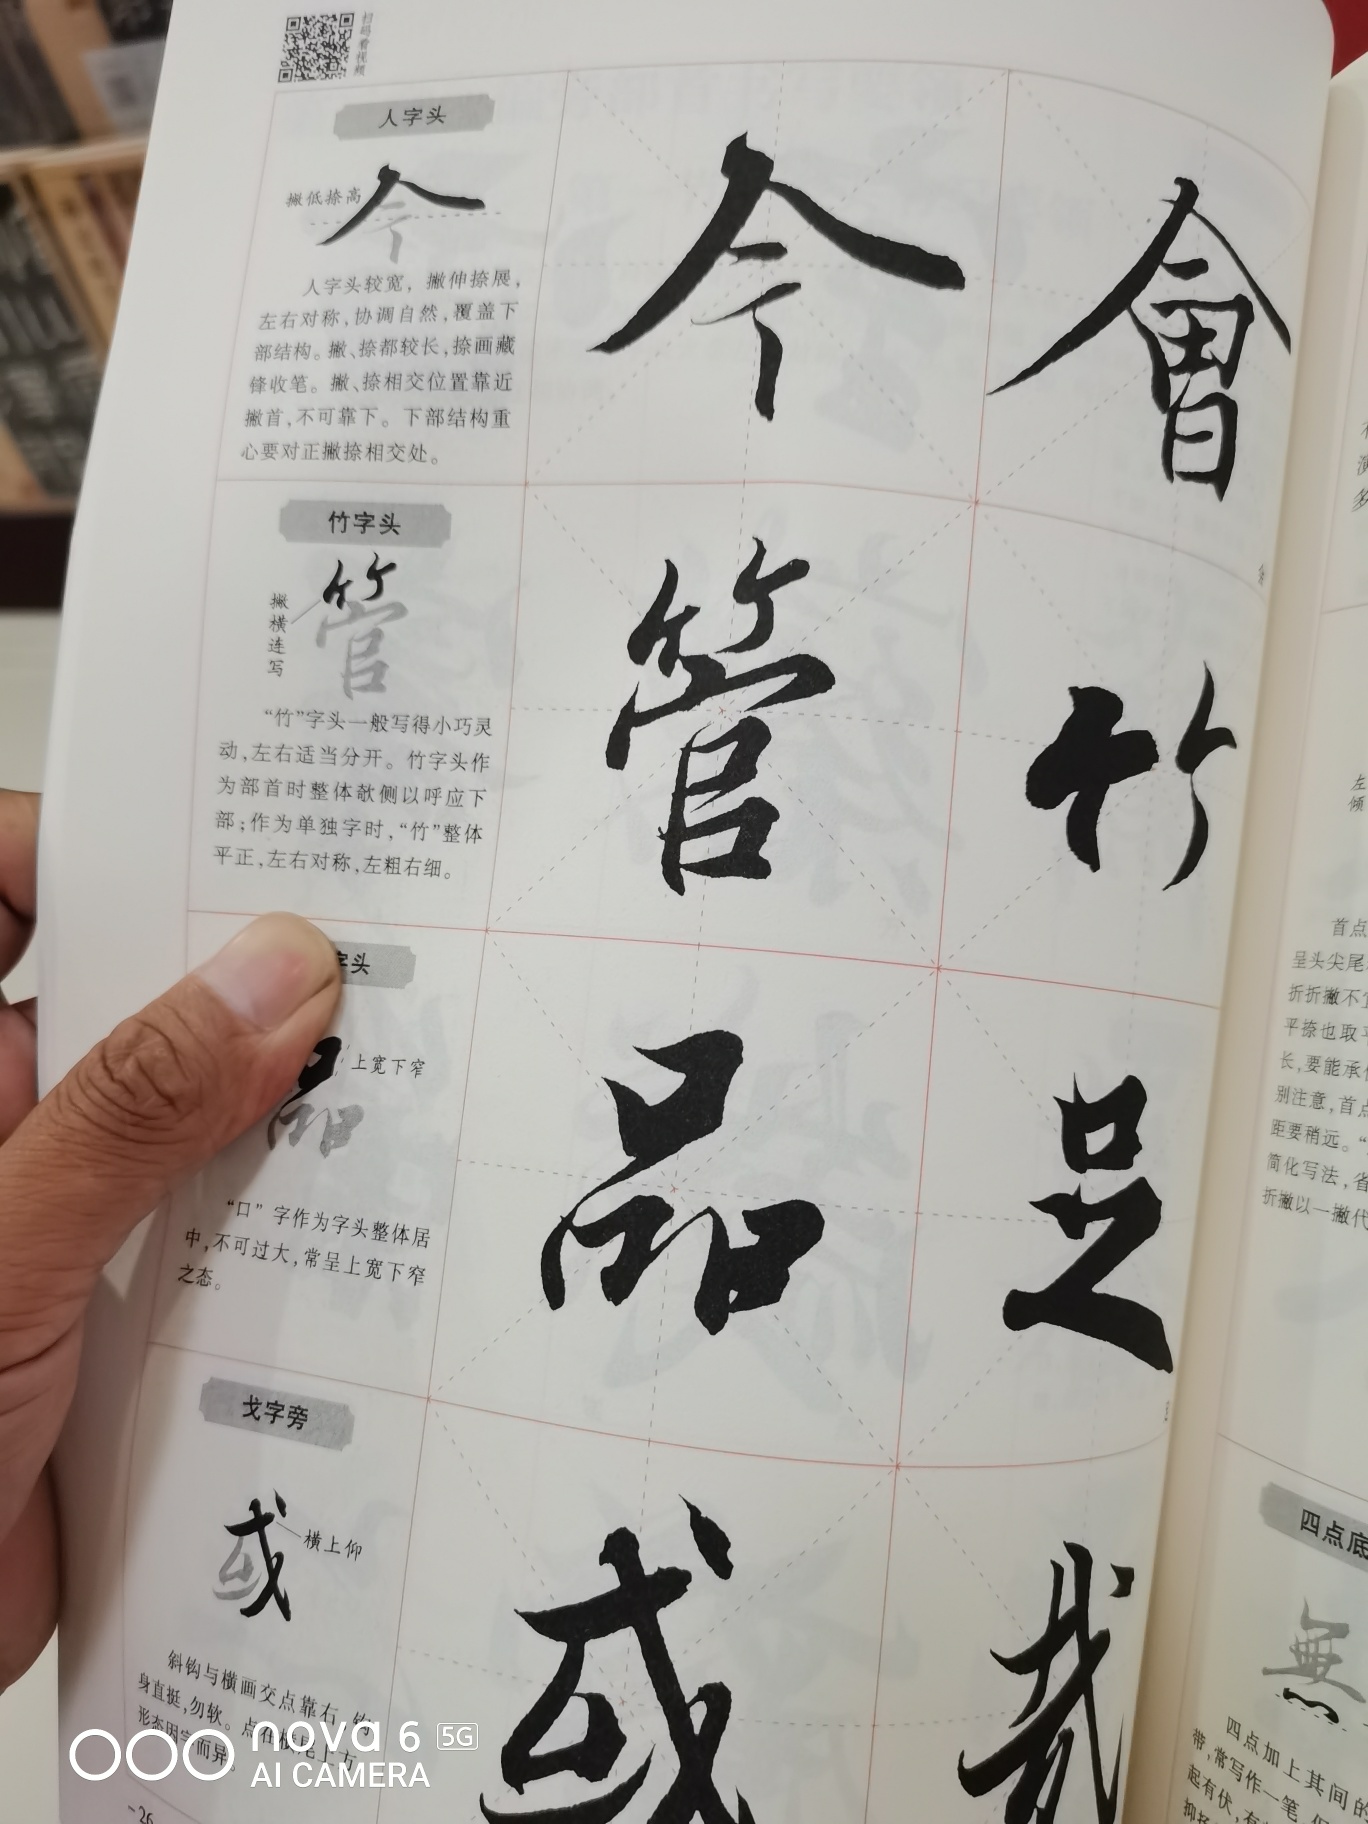 扫码看视频
人字头
撇低捺高
今
人字头较宽，撇伸捺展，
左右对称，协调自然，覆盖下
部结构。撇、捺都较长，捺画藏
锋收笔。撇、捺相交位置靠近
撇首，不可靠下。下部结构重
心要对正撇捺相交处。
今
會
竹字头
撇横连写
管
“竹”字头一般写得小巧灵
动，左右适当分开。竹字头作
为部首时整体欹侧以呼应下
部；作为单独字时，“竹”整体
平正，左右对称，左粗右细。
管
竹
字头
上宽下窄
品
“口”字作为字头整体居
中，不可过大，常呈上宽下窄
之态。
品
足
戈字旁
或
横上仰
斜钩与横画交点靠右，钩
身直挺，勿软。点在横尾上方，
形态因字而异。
或
哉
-26
首点
呈头尖尾
折折撇不宜
平捺也取平
长，要能承
别注意，首点
距要稍远。“
简化写法，省
折撇以一撇代
四点底
無
四点加上其间的
带，常写作一笔，但
起有伏，有
nova 6 5G
AI CAMERA